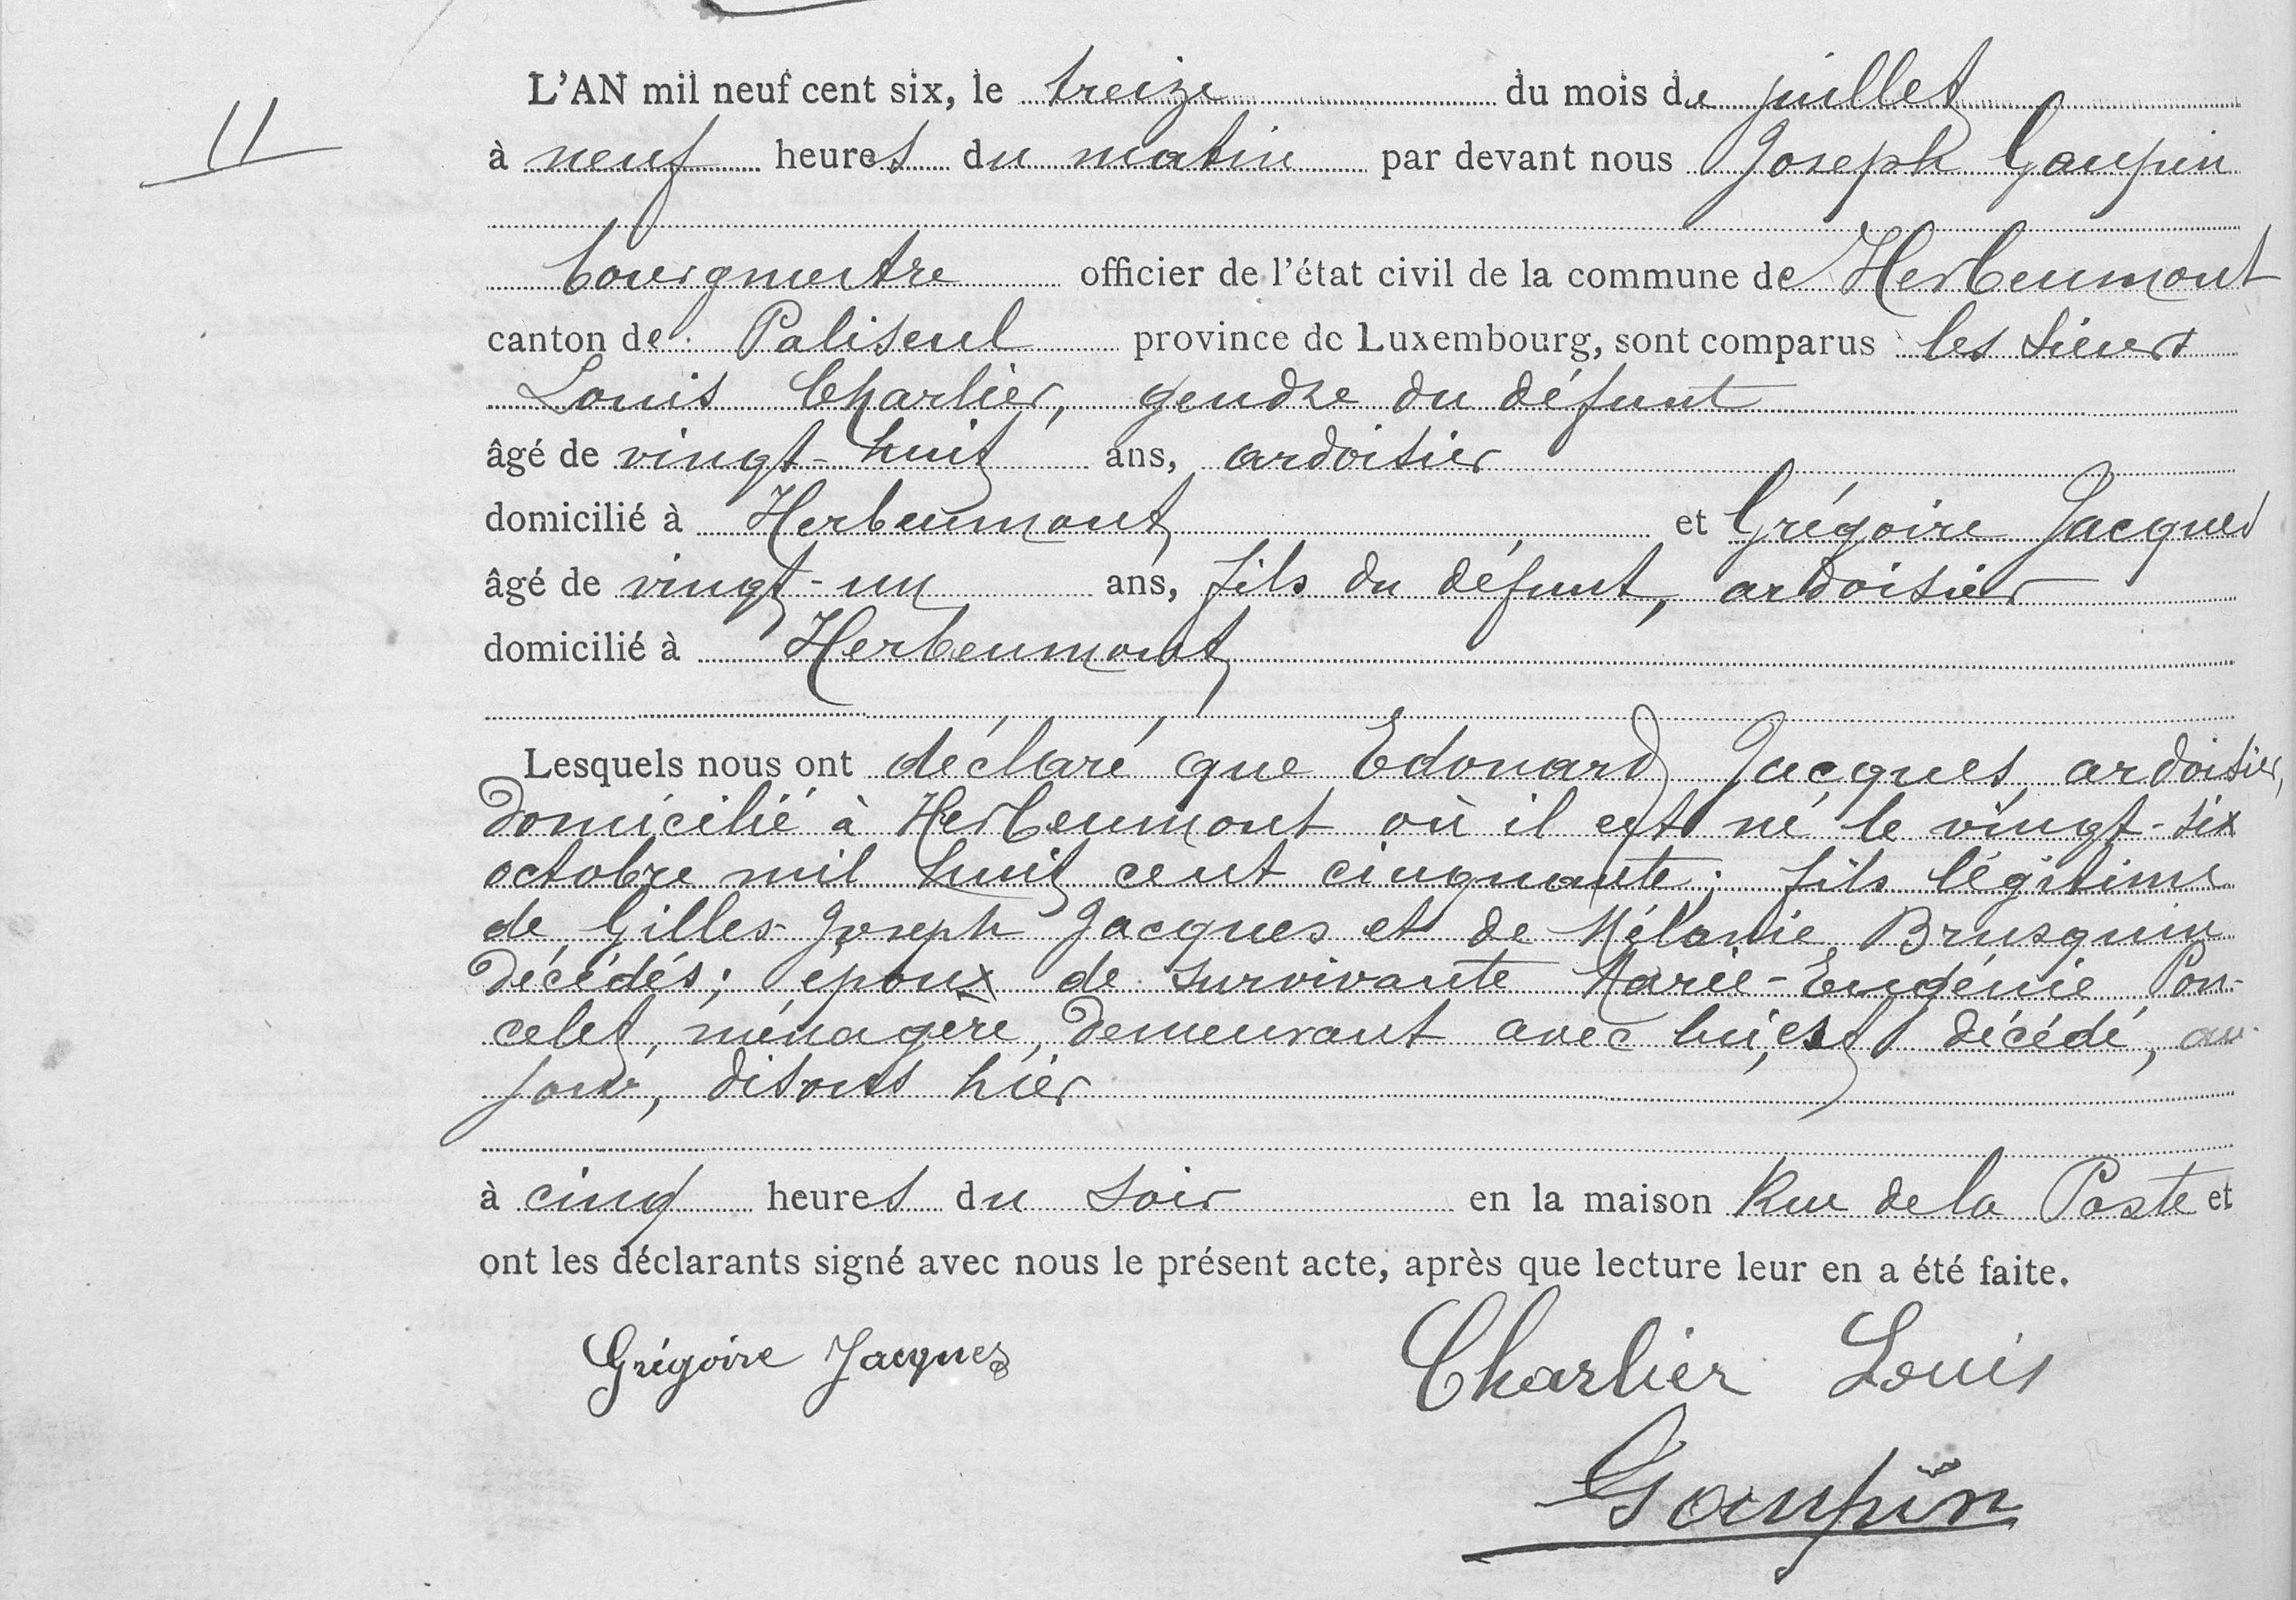 L'AN mil neuf cent six, le treize du mois de juillet
11
à neuf heures du matin par devant nous Joseph Gaupin
bourgmestre officier de l'état civil de la commune de Herbeumont
canton de Paliseul province de Luxembourg, sont comparus les sieurs
Louis Charlier, gendre du défunt
âgé de vingt-huit ans, ardoisier
domicilié à Herbeumont et Grégoire Jacques
âgé de vingt-un ans, fils du défunt, ardoisier
domicilié à Herbeumont
Lesquels nous ont déclaré que Edouard Jacques, ardoisier,
domicilié à Herbeumont où il est né le vingt-six
octobre mil huit cent cinquante; fils légitime
de Gilles-Joseph Jacques et de Mélanie Brusquin
décédés; époux de survivante Marie-Eugénie Pon-
celet, ménagère, demeurant avec lui, est décédé, au-
jour, disons hier
à cinq heures du soir en la maison Rue de la Poste et
ont les déclarants signé avec nous le présent acte, après que lecture leur en a été faite.
Grégoire Jacques Charlier Louis
Gaupin